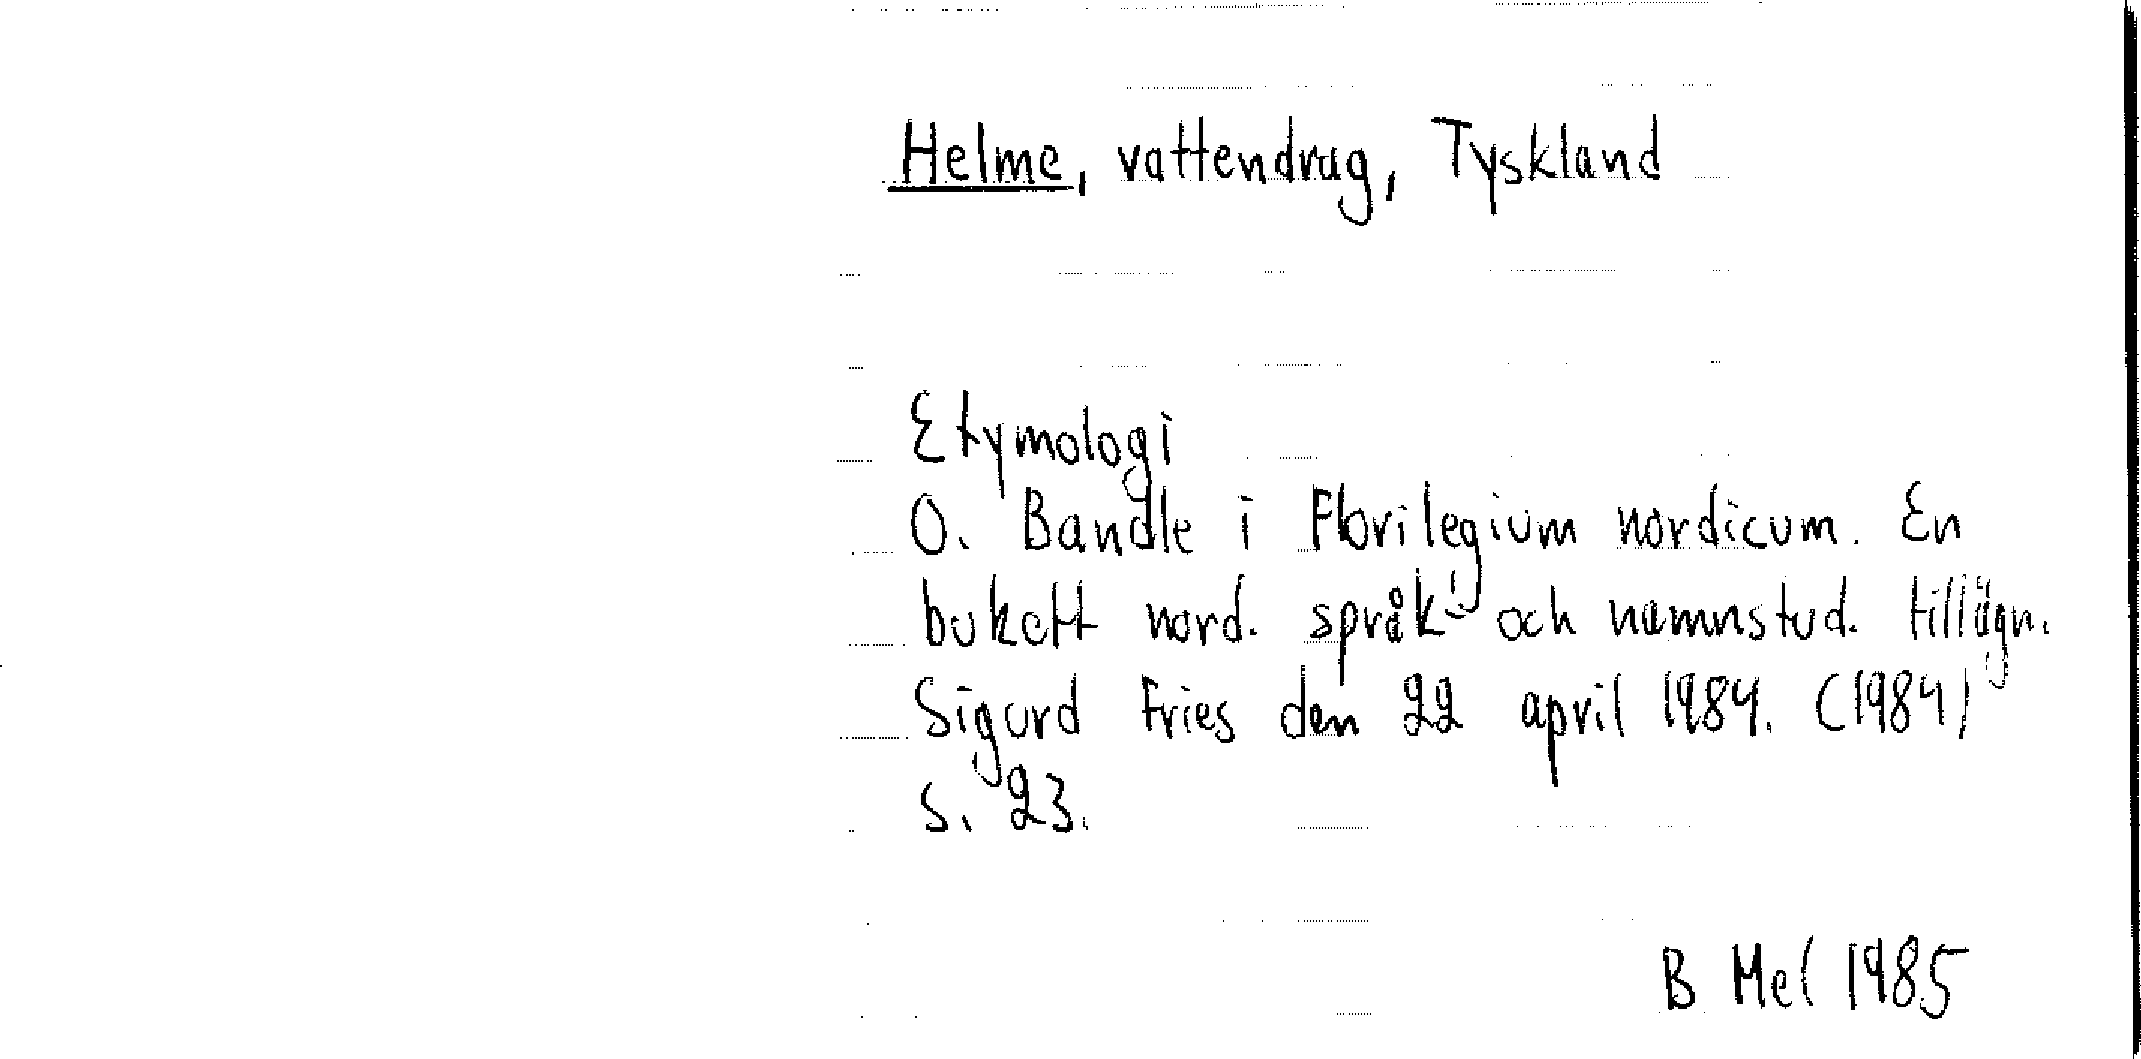 Helme, vattendrag, Tyskland
Etymologi
O. Bandle i Florilegium nordicum. En
bukett nord. språk- och namnstud. tillägn.
Sigurd Fries den 22 april 1984. (1984)
s. 23.
B Mel 1985